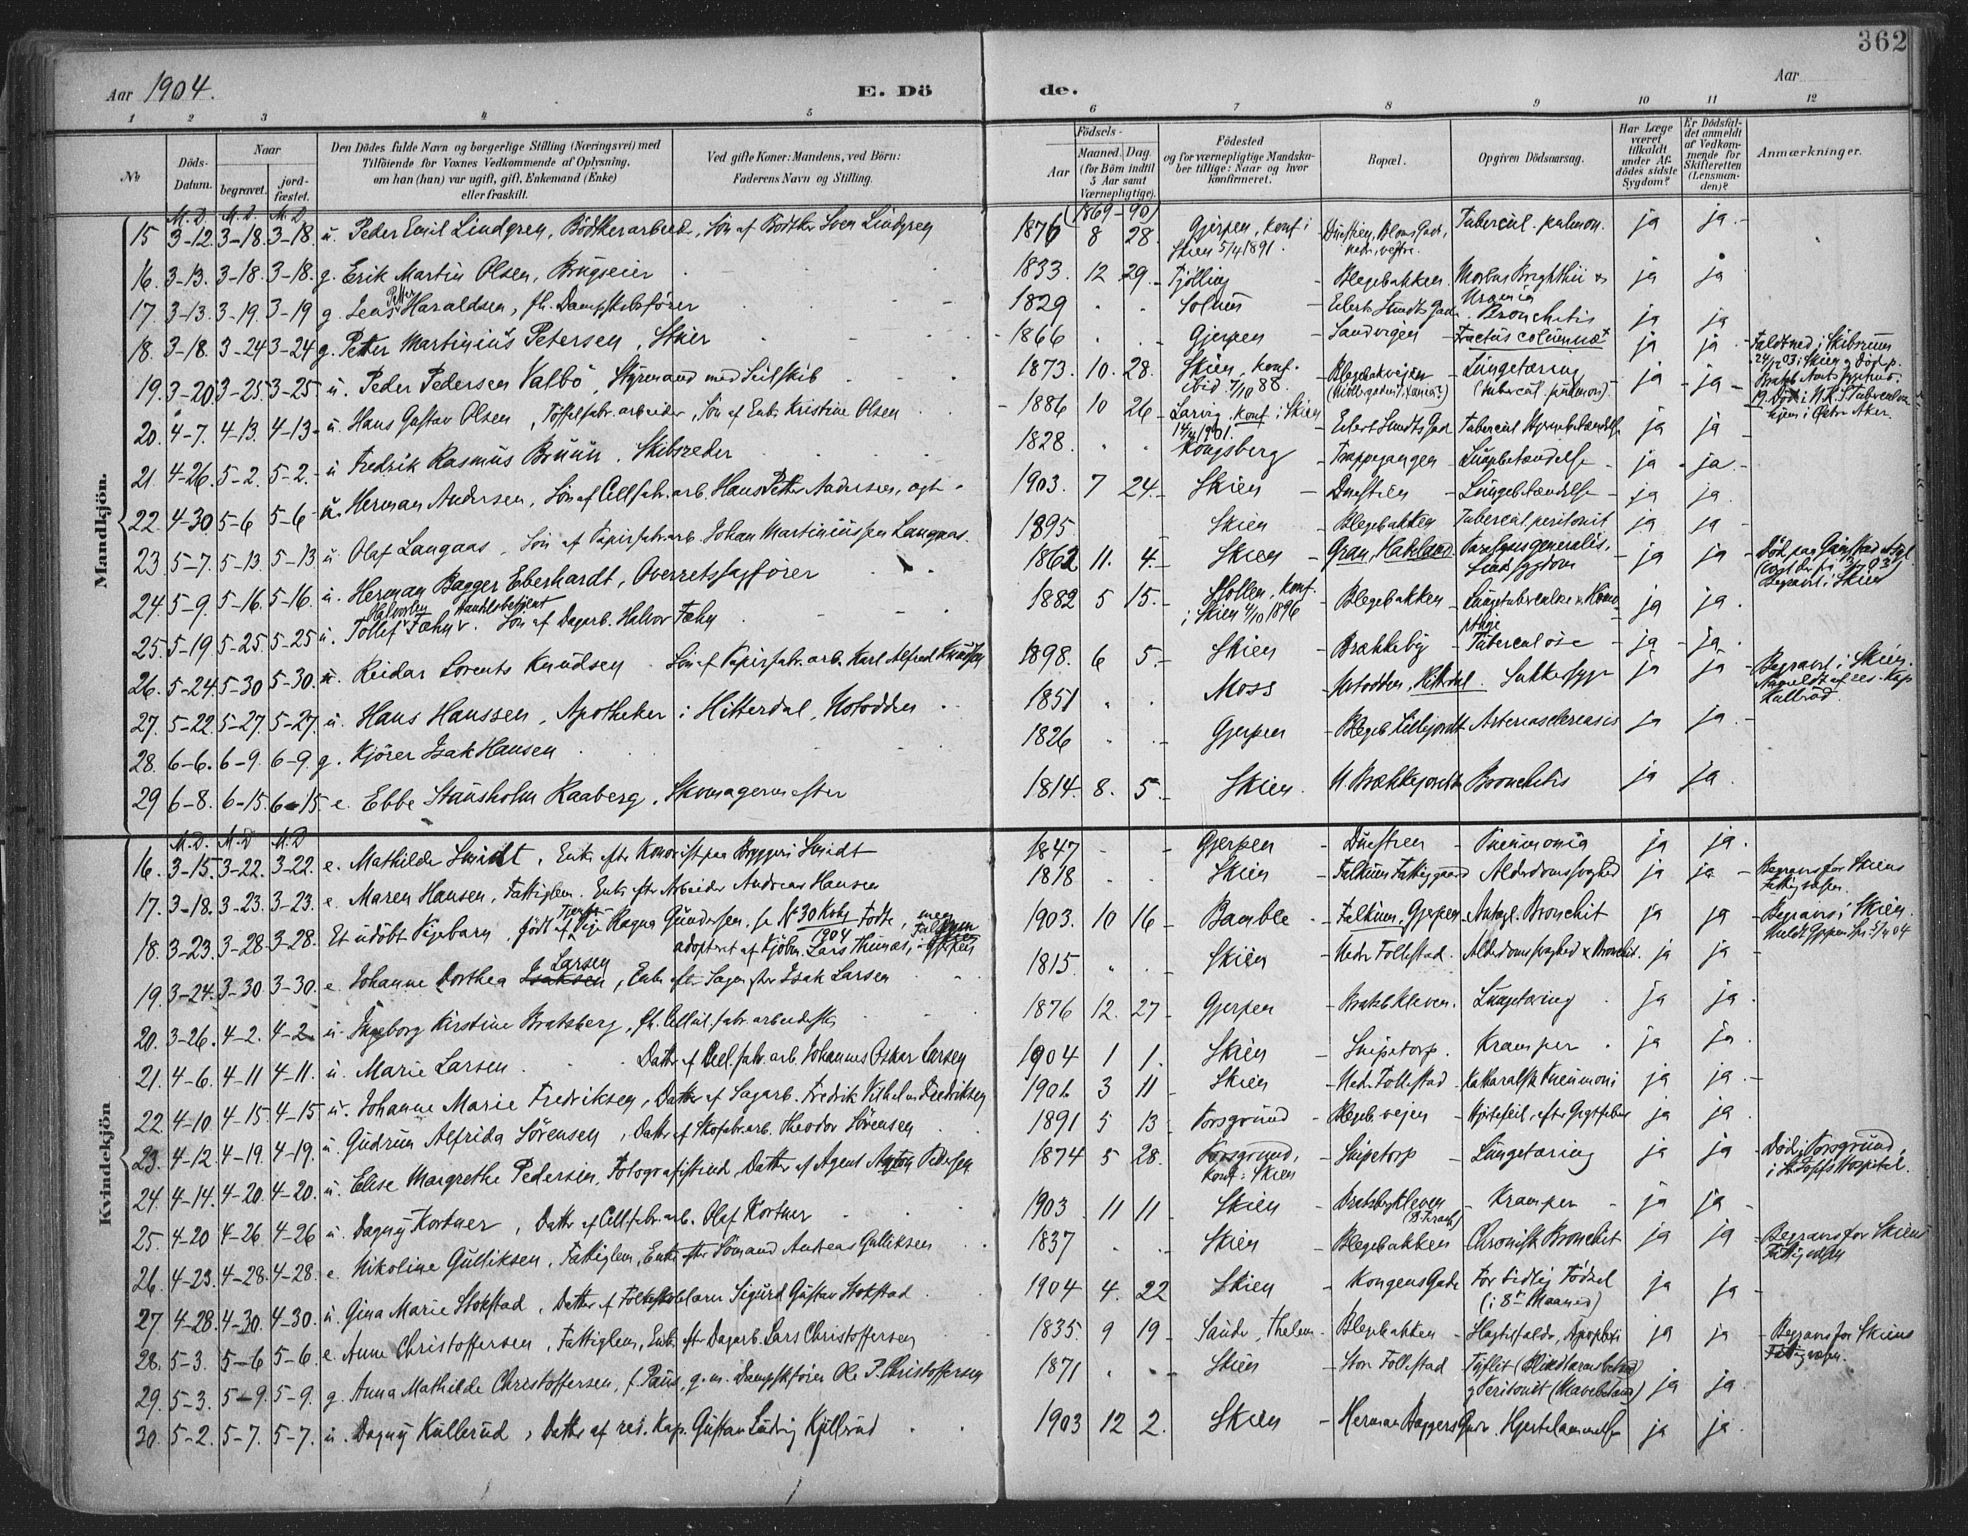 362
Aar 1904.
E. Dö
de.
Aar
1 2 3 4 5 6 7 8 9 10 11 12
No
Döds-Datum.
Naar
begravet.
jord-fæstet.
Den Dödes fulde Navn og borgerlige Stilling (Næringsvei) med
Tilföiende for Voxnes Vedkommende af Oplysning,
om han (hun) var ugift, gift, Enkemand (Enke)
eller fraskilt.
Ved gifte Koner: Mandens, ved Börn:
Faderens Navn og Stilling.
Födsels-
Aar
Maaned. Dag.
(for Börn indtil
5 Aar samt
Værnepligtige).
Födested
og for værnepligtige Mandska-
ber tillige: Naar og hvor
konfirmeret.
Bopæl.
Opgiven Dödsaarsag.
Har Læge
været
tilkaldt
under Af-
dödes sidste
Sygdom?
Er Dödsfal-
det anmeldt
af Vedkom-
mende for
Skifteretten
(Lensman-
den)?
Anmærkninger.
Mandkjön.
M. D. M. D. M. D. (1869-90)
15 3-12. 3-18. 3-18 u. Peder Emil Lindgren, Bödkerarbeid., Sön af Bödker Sven Lindgren 1876 8 28. Gjerpen, konf. i Skien 5/4 1891. Tubercul. pulmon. ja ja.
16. 3-13. 3-18. 3-18. g. Erik Martin Olsen, Brugseier 1833. 12 29. Tjölling Blegebakken. Morbus Brightii & Uræmia ja ja
17. 3-13. 3-19. 3-19 g. Jens Petter Haraldsen, fh. Dampskibsfører 1829 Solum Eilert Sundts Gade. Bronchitis ja ja
18. 3-18. 3-24 3-24 g. Petter Martinius Petersen, Skier 1866 Gjerpen Sandvigen Fractus columnæ ja ja Faldt ned i Skibsrum 24/10 03 i Skien og Död p. Bratsb. Amts Sygehus.
19. 3-20 3-25 3-25 u. Peder Pedersen Valbö, Styrmand med Seilskib 1873. 10. 28. Skien, konf. ibid. 7/10 88. Blegebakveien Lungetæring (tubercul. pulmon.) ja ja
20. 4-7. 4-13. 4-13 u. Hans Gustav Olsen, Töffelfabr.arbeider, Sön af Enke Kristine Olsen 1886 10 26 Larvig, konf. i Skien 1901. Eilert Sundts Gade Tubercul. Hjernebetændelse ja ja
21. 4-26. 5-2. 5-2. u Fredrik Rasmus Bruun, Skibsreder 1828 Kongsberg Trappegangen Lungebetændelse ja ja.
22. 4-30 5-6 5-6 u. Herman Andersen, Sön af Cell.fabr.arb. Hans Petter Andersen, 1903. 7 24. Skien Duestien Lungebetændelse ja ja.
23 5-7. 5-13. 5-13 u Olaf Langaas, Sön af Papirfabr.arb. Johan Martiniussen Langaas. 1895 Skien Blegebakken Tubercul. peritonit ja ja
24. 5-9. 5-16. 5-16. u. Herman Bagger Eberhardt, Overretssagfører 1862 11. 4. Skien Gran, Hadeland Paralysis generalis, Sindssygdom ja ja Död paa Gaustad Asyl Begravet i Skien
25. 5-19 5-25. 5-25 u. Tollef Halvorsen Fæhn, Handelsbetjent Sön af Dagarb. Halvor Fæhn 1882 5 15. Hollen, konf. i Skien 4/10 1896 Blegebakken Lungetuberculose & Hæmoptyse ja ja.
26. 5-24. 5-30 5-30. u. Reidar Lorents Knudsen Sön af Papirfabr. arb. Karl Alfred Knudsen 1898. 6 5. Skien Brækkeby Tuberculose ja ja.
27. 5-22. 5-27. 5-27. u. Hans Hanssen, Apotheker i Hitterdal, Notodden 1851 Moss Notodden, Hitterdal. Sukkersyge ja ja Begravet i Skien. Anmeldt af res. Kap. Kullerud.
28. 6-6. 6-9. 6-9. g. Kjörer Isak Hansen 1826 Gjerpen Blegeb. Lillejordet Arteriosclerosis ja ja.
29 6-8. 6-15. 6-15. e. Ebbe Stausholm Raaberg, Skomagermester 1814. 8. 5. Skien. N. Brækkejordet Bronchitis ja ja.
Kvindekjön
M. D. M. D M. D
16. 3-15. 3-22. 3-22. e. Mathilde Smidt, Enke efter Kontorist paa Bryggeri Smidt 1847 Gjerpen Duestien Pneumonia ja ja.
17. 3-18. 3-23. 3-23. e. Maren Hansen, Fattiglem. Enke efter Arbeider Andreas Hansen 1818 Skien Falkum Fattiggaard Alderdomssvaghed ja ja Begraves for Skiens Fattigvæsen.
18. 3-23. 3-28. 3-28. Et udöbt Pigebarn, födt af Tjenestepige Ragna Gundersen, se No 30 Kvk. Födte, 1904 men adopteret af Kjöbm. Lars Thunæs, 1903. 10 16 Bamble Falkum, Gjerpen Bronchit ja ja Begravet i Skien.
19. 3-24. 3-30 3-30. e. Johanne Dorthea Isaksen Larsen, Enke efter Sagmester Isak Larsen 1815. Skien Nedre Follestad. Alderdomssvaghed & Bronchit. ja ja.
20. 3-26. 4-2. 4-2 u. Ingeborg Kirstine Bratsberg, fh. Cellul.fabr.arbeiderske 1876 12. 27 Gjerpen Bratsbkleven. Lungetæring ja ja.
21. 4-6. 4-11 4-11. u. Marie Larsen Datter af Cell.fabr.arb. Johannes Oskar Larsen 1904 1 1. Skien Snipetorp. Kramper ja ja.
22. 4-10 4-15. 4-15 u. Johanne Marie Fredriksen, Datter af Sagarb. Fredrik Vilhelm Fredriksen 1901 3 11 Skien Nedre Follestad Kattaralsk Pneumoni ja ja.
23. 4-12. 4-19. 4-19. u. Gudrun Alfrida Sörensen, Datter af Skofabr.arb. Theodor Sörensen 1891 5 13 Porsgrund Blegeb.veien Hjertefeil, efter Gigtfeber ja ja.
24. 4-14. 4-20. 4-20. u. Elise Margrethe Pedersen, Fotografistinde, Datter af Agent Anton Pedersen 1874 5 28. Porsgrund, konf. i Skien Snipetorp Lungetæring ja ja Död i Porsgrund, i St. Josephs Hospital.
25. 4-20 4-26. 4-26 u. Dagny Kortner, Datter af Cell.fabr.arb. Olaf Kortner 1903 11 11 Skien Bratsbergkleven Kramper ja ja
26. 4-23. 4-28. 4-28. e. Nikoline Gulliksen, Fattiglem, Enke efter Sömand Andreas Gulliksen 1837 Skien Blegebakken Chronisk Bronchit ja ja Begraves for Skiens Fattigvæsen
27 4-28. 4-30. 4-30. u. Gina Marie Stokstad, Datter af Folkeskolelærer Sigurd Gustav Stokstad 1904 4. 22 Skien Kongens Gade For tidlig Födsel (i 8de Maaned) ja ja
28. 5-3. 5-6 5-6. e. Anne Christoffersen, Fattiglem, Enke efter Dagarb. Lars Christoffersen 1835. 9 19 Saude, Thelem. Blegebakken Apoplexi ja ja Begraves for Skiens Fattigvæsen.
29. 5-3. 5-9. 5-9. g. Anna Mathilde Christoffersen, f. Paus, g. m. Dampskförer Ole P. Christoffersen 1871 Skien Store Follestad Tyflit (Blindtarmsbetænd) og Peritonit (Mavebetænd) ja ja.
30. 5-2. 5-7. 5-7. u. Dagny Kullerud, Datter af res. Kap. Gustav Ludvig Kullerud 1903 12 2. Skien Herman Baggers Gade. Hjertelammelse ja ja.